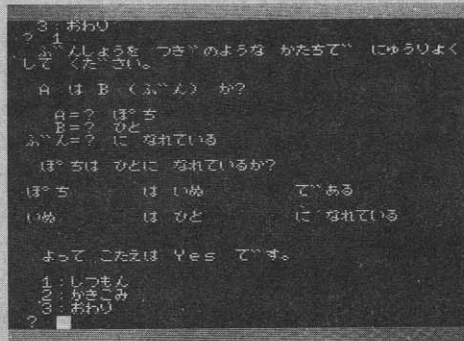 3:おわり
? 1
ぶんしょうを つぎのような かたちで にゅうりょく
して ください。
A は B (ぶん) か?
A=? ぽち
B=? ひと
ぶん=? に なれている
ぽちは ひとに なれているか?
ぽち は いぬ である
いぬ は ひと に なれている
よって こたえは Yes です。
1:しつもん
2:かきこみ
3:おわり
?